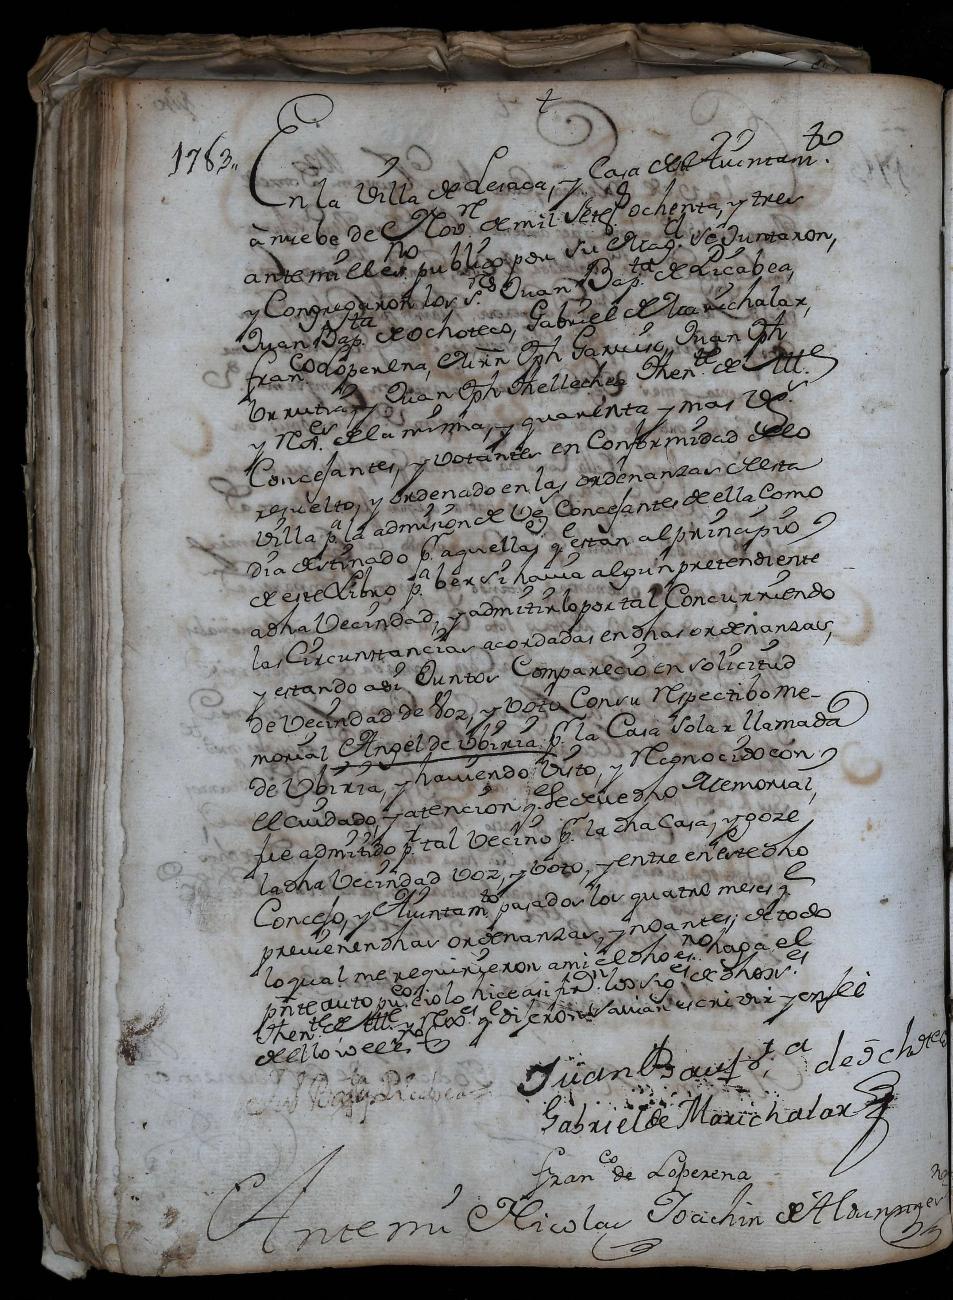 1783,,
En la Villa de Lesaca, y Casa de el Aiuntam.to
à nuebe de Nov.re de mil Setec.s ochenta, y tres
ante mi el es.no publico por su Mag.d se Juntaron,
y Congregaron los S.res Juan Bap.ta de Licabea,
Juan Bap.ta de ochoteco, Gabriel de Marichalar,
Fran.co Loperena, Mrñ Jph Garmiso, Juan Jph
Urrutia, y Juan Jph Thelleche Then.te de Alc.
y R.es de la misma, y quarenta y mas V.s
Concejantes, y votantes en Conformidad de lo
resuelto, y ordenado en las ordenanzas de esta
Villa p.a la admision de Ve.s Concejantes de ella Como
dia destinado p.r aquellas q.e estàn al principio
de este Libro p.a ber si havia algun pretendiente
a dha Vecindad, y admitirlo por tal Concurriendo
las Circunstancias acordadas en dhas ordenanzas,
y estando asi Juntos Comparecio en solicitud
de Vecindad de Voz, y Voto Con su Respectibo me-
morial Angel de Ubiria p.r la Casa Solar llamada
de Ubiria, y haviendo Visto, y Reconocido con
el cuidado, y atencion q.e se deve dho Memorial,
fue admitido p.r tal Vecino p.r la dha Casa, y goze
la dha Vecindad Voz, y Voto, y entre en este dho
Concejo, y Aiuntam.to pasados los quatro meses q.e
previenen dhas ordenanzas, y no antes; de todo
lo qual me requirieron a mi el dho es.no haga el
pñte auto pu.co è io lo hice asi fir.on los sig.es de dhos S.es
Then.te de Alc. y R.es q.e dijeron savian escrivir y en fee
de ello io el es.no
Juan Bautista de ochoteco
Gabriel de Marichalar
Fran.co de Loperena
Ante mi Nicolas Joachin de Aldun